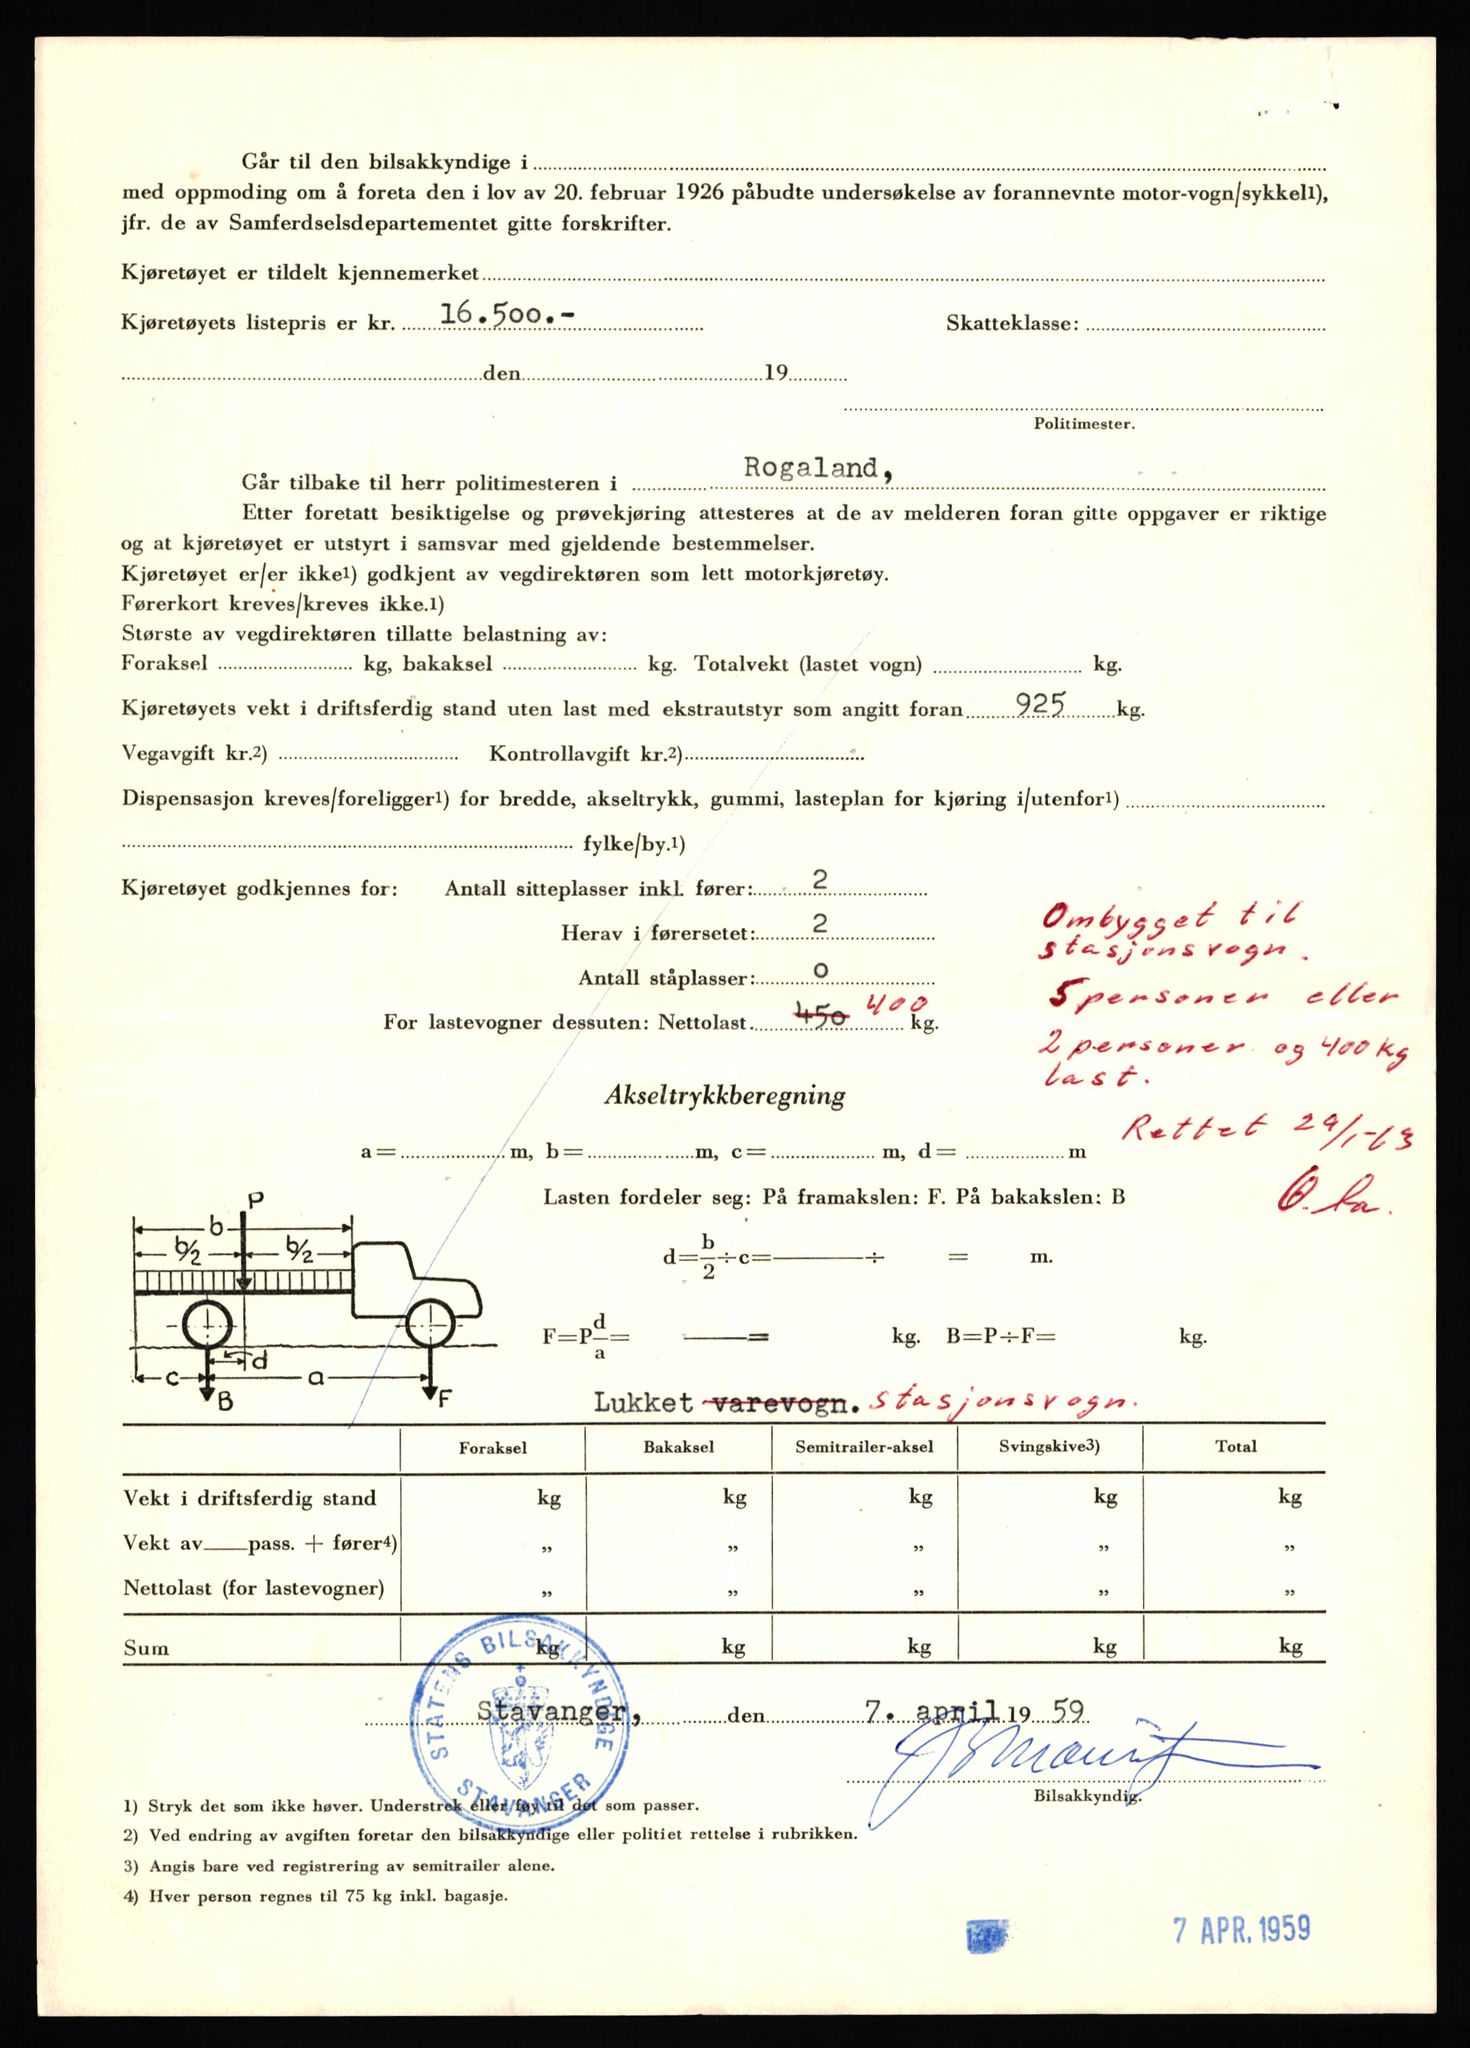 Går til den bilsakkyndige i
med oppmoding om å foreta den i lov av 20. februar 1926 påbudte undersøkelse av forannevnte motor-vogn/sykkel1),
jfr. de av Samferdselsdepartementet gitte forskrifter.
Kjøretøyet er tildelt kjennemerket
Kjøretøyets listepris er kr. 16.500.- Skatteklasse:
den 19
Politimester.
Går tilbake til herr politimesteren i Rogaland,
Etter foretatt besiktigelse og prøvekjøring attesteres at de av melderen foran gitte oppgaver er riktige
og at kjøretøyet er utstyrt i samsvar med gjeldende bestemmelser.
Kjøretøyet er/er ikke1) godkjent av vegdirektøren som lett motorkjøretøy.
Førerkort kreves/kreves ikke.1)
Største av vegdirektøren tillatte belastning av:
Foraksel kg, bakaksel kg. Totalvekt (lastet vogn) kg.
Kjøretøyets vekt i driftsferdig stand uten last med ekstrautstyr som angitt foran 925 kg.
Vegavgift kr.2) Kontrollavgift kr.2)
Dispensasjon kreves/foreligger1) for bredde, akseltrykk, gummi, lasteplan for kjøring i/utenfor1)
fylke/by.1)
Kjøretøyet godkjennes for: Antall sitteplasser inkl. fører: 2
Herav i førersetet: 2
Antall ståplasser: 0
For lastevogner dessuten: Nettolast 450 400 kg.
Ombygget til
stasjonsvogn.
5 personer eller
2 personer og 400 kg
last.
Rettet 29/1-63
Akseltrykkberegning
a = m, b = m, c = m, d = m
Lasten fordeler seg: På framakslen: F. På bakakslen: B
d = b/2 ÷ c = ÷ = m.
F = P d/a = = kg. B = P ÷ F = kg.
P
b
b/2 b/2
d
c a
B F
Lukket varevogn. stasjonsvogn.
Foraksel Bakaksel Semitrailer-aksel Svingskive3) Total
Vekt i driftsferdig stand kg kg kg kg kg
Vekt av pass. + fører4) „ „ „ „ „
Nettolast (for lastevogner) „ „ „ „ „
Sum kg kg kg kg kg
STATENS BILSAKKYNDIGE
STAVANGER
Stavanger, den 7. april 19 59
Bilsakkyndig.
1) Stryk det som ikke høver. Understrek eller føy til det som passer.
2) Ved endring av avgiften foretar den bilsakkyndige eller politiet rettelse i rubrikken.
3) Angis bare ved registrering av semitrailer alene.
4) Hver person regnes til 75 kg inkl. bagasje.
7 APR. 1959